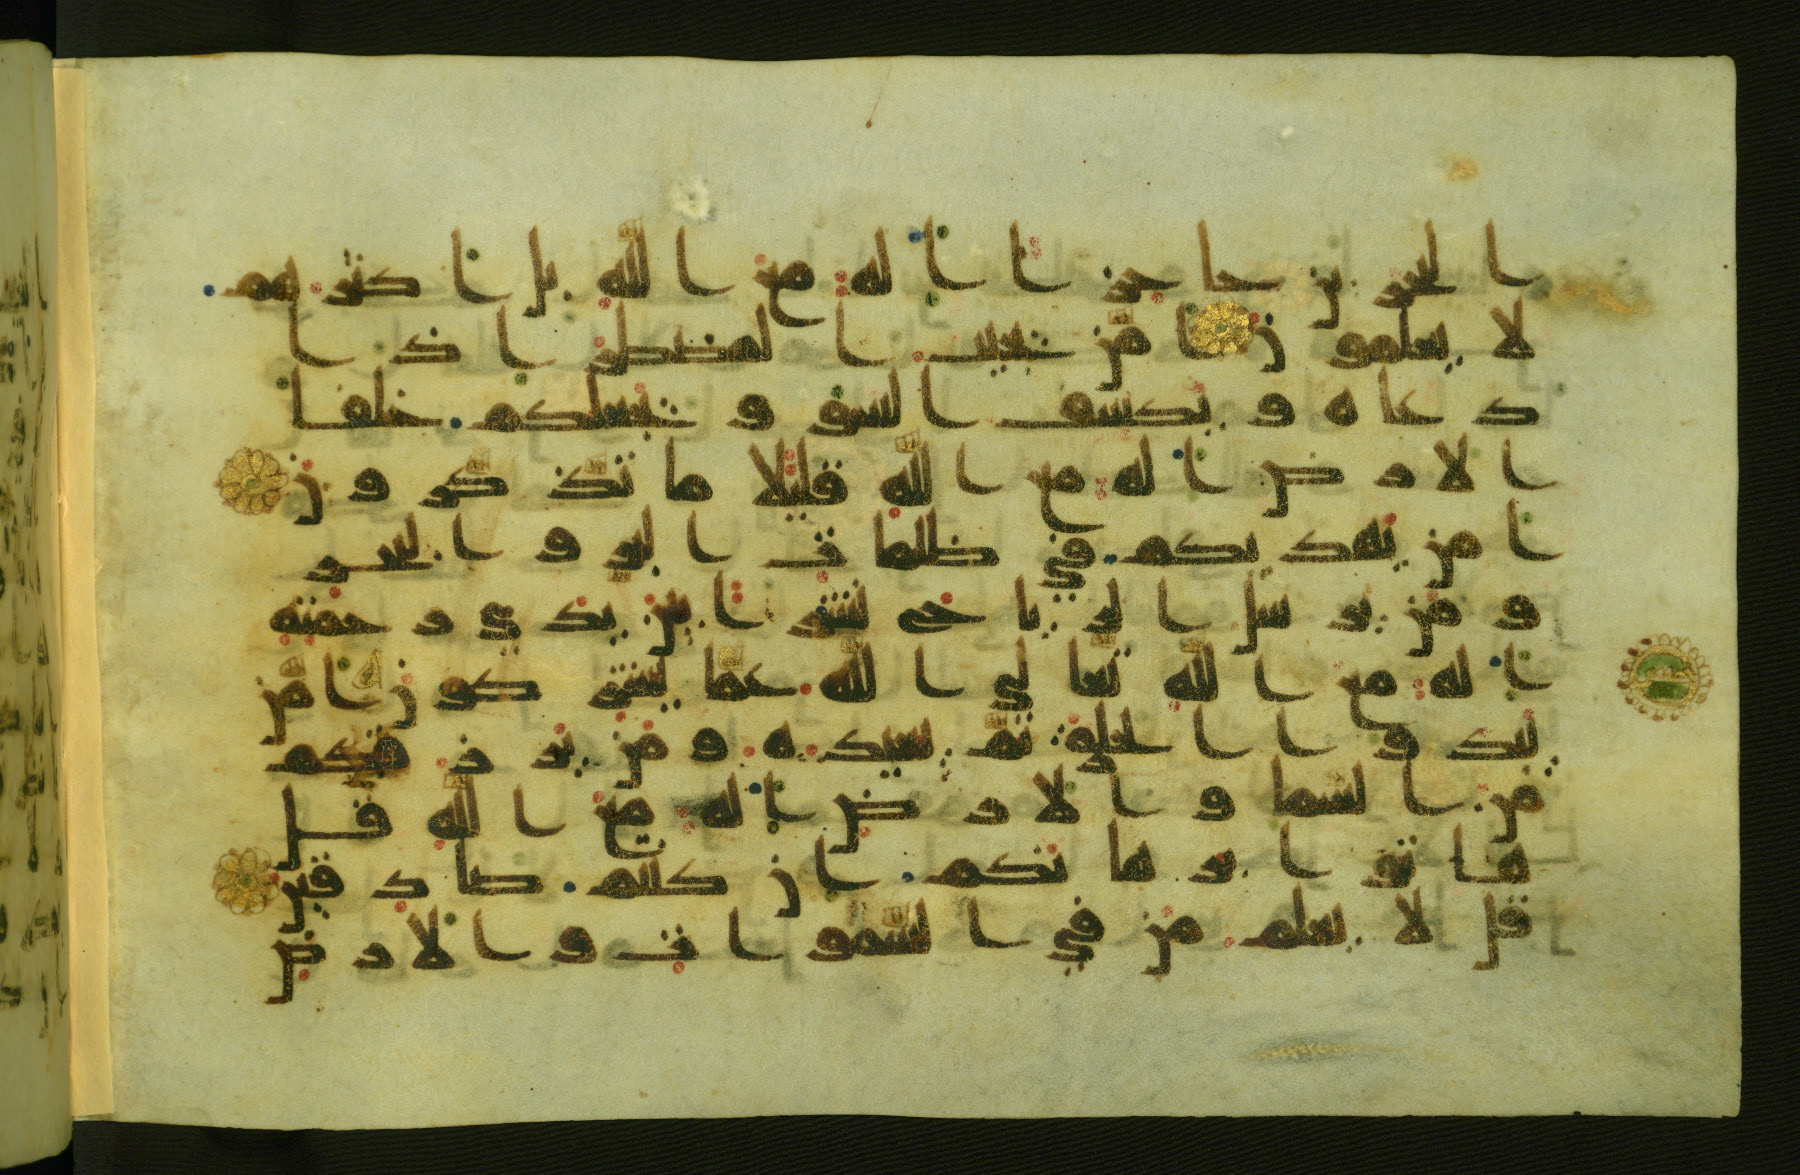 البحرين حاجزا اله مع الله بل اكثرهم
لا يعلمون امن يجيب المضطر اذا
دعاه ويكشف السو ويجعلكم خلفا
الارض اله مع الله قليلا ما تذكرون
امن يهديكم في ظلمات البر والبحر
ومن يرسل الرياح نشرا بين يدي رحمته
اله مع الله تعالي الله عما يشركون امن
يبدوا الخلق ثم يعيده ومن يرزقكم
من السما والارض اله مع الله قل
هاتوا برهانكم ان كنتم صادقين
قل لا يعلم من في السموات والارض